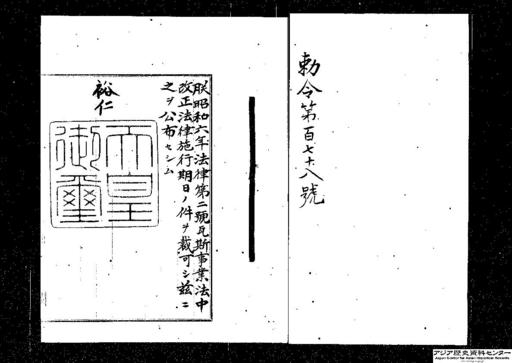 勅令第百七十八號
朕昭和六年法律第二號瓦斯事業法中
改正法律施行期日ノ件ヲ裁可シ茲ニ
之ヲ公布セシム
裕仁
天皇御璽
アジア歴史資料センター
Japan Center for Asian Historical Records